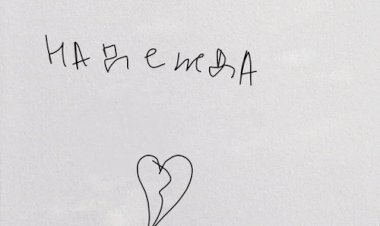 НАДеЖДА